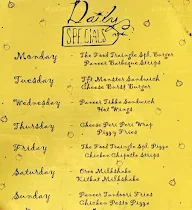 Daily
SPECIALS
Monday - The Food Triangle Spl. Burger
Paneer Barbeque Strips
Tuesday - Tft Monster Sandwich
Cheese Burst Burger
Wednesday - Paneer Tikka Sandwich
Hot Wings
Thursday - Cheese Peri Peri Wrap
Pizzy Fries
Friday - The Food Triangle Spl. Pizza
Chicken Chipotle Strips
Saturday - Oreo Milkshake
Kitkat Milkshake
Sunday - Paneer Tandoori Fries
Chicken Pasta Pizza